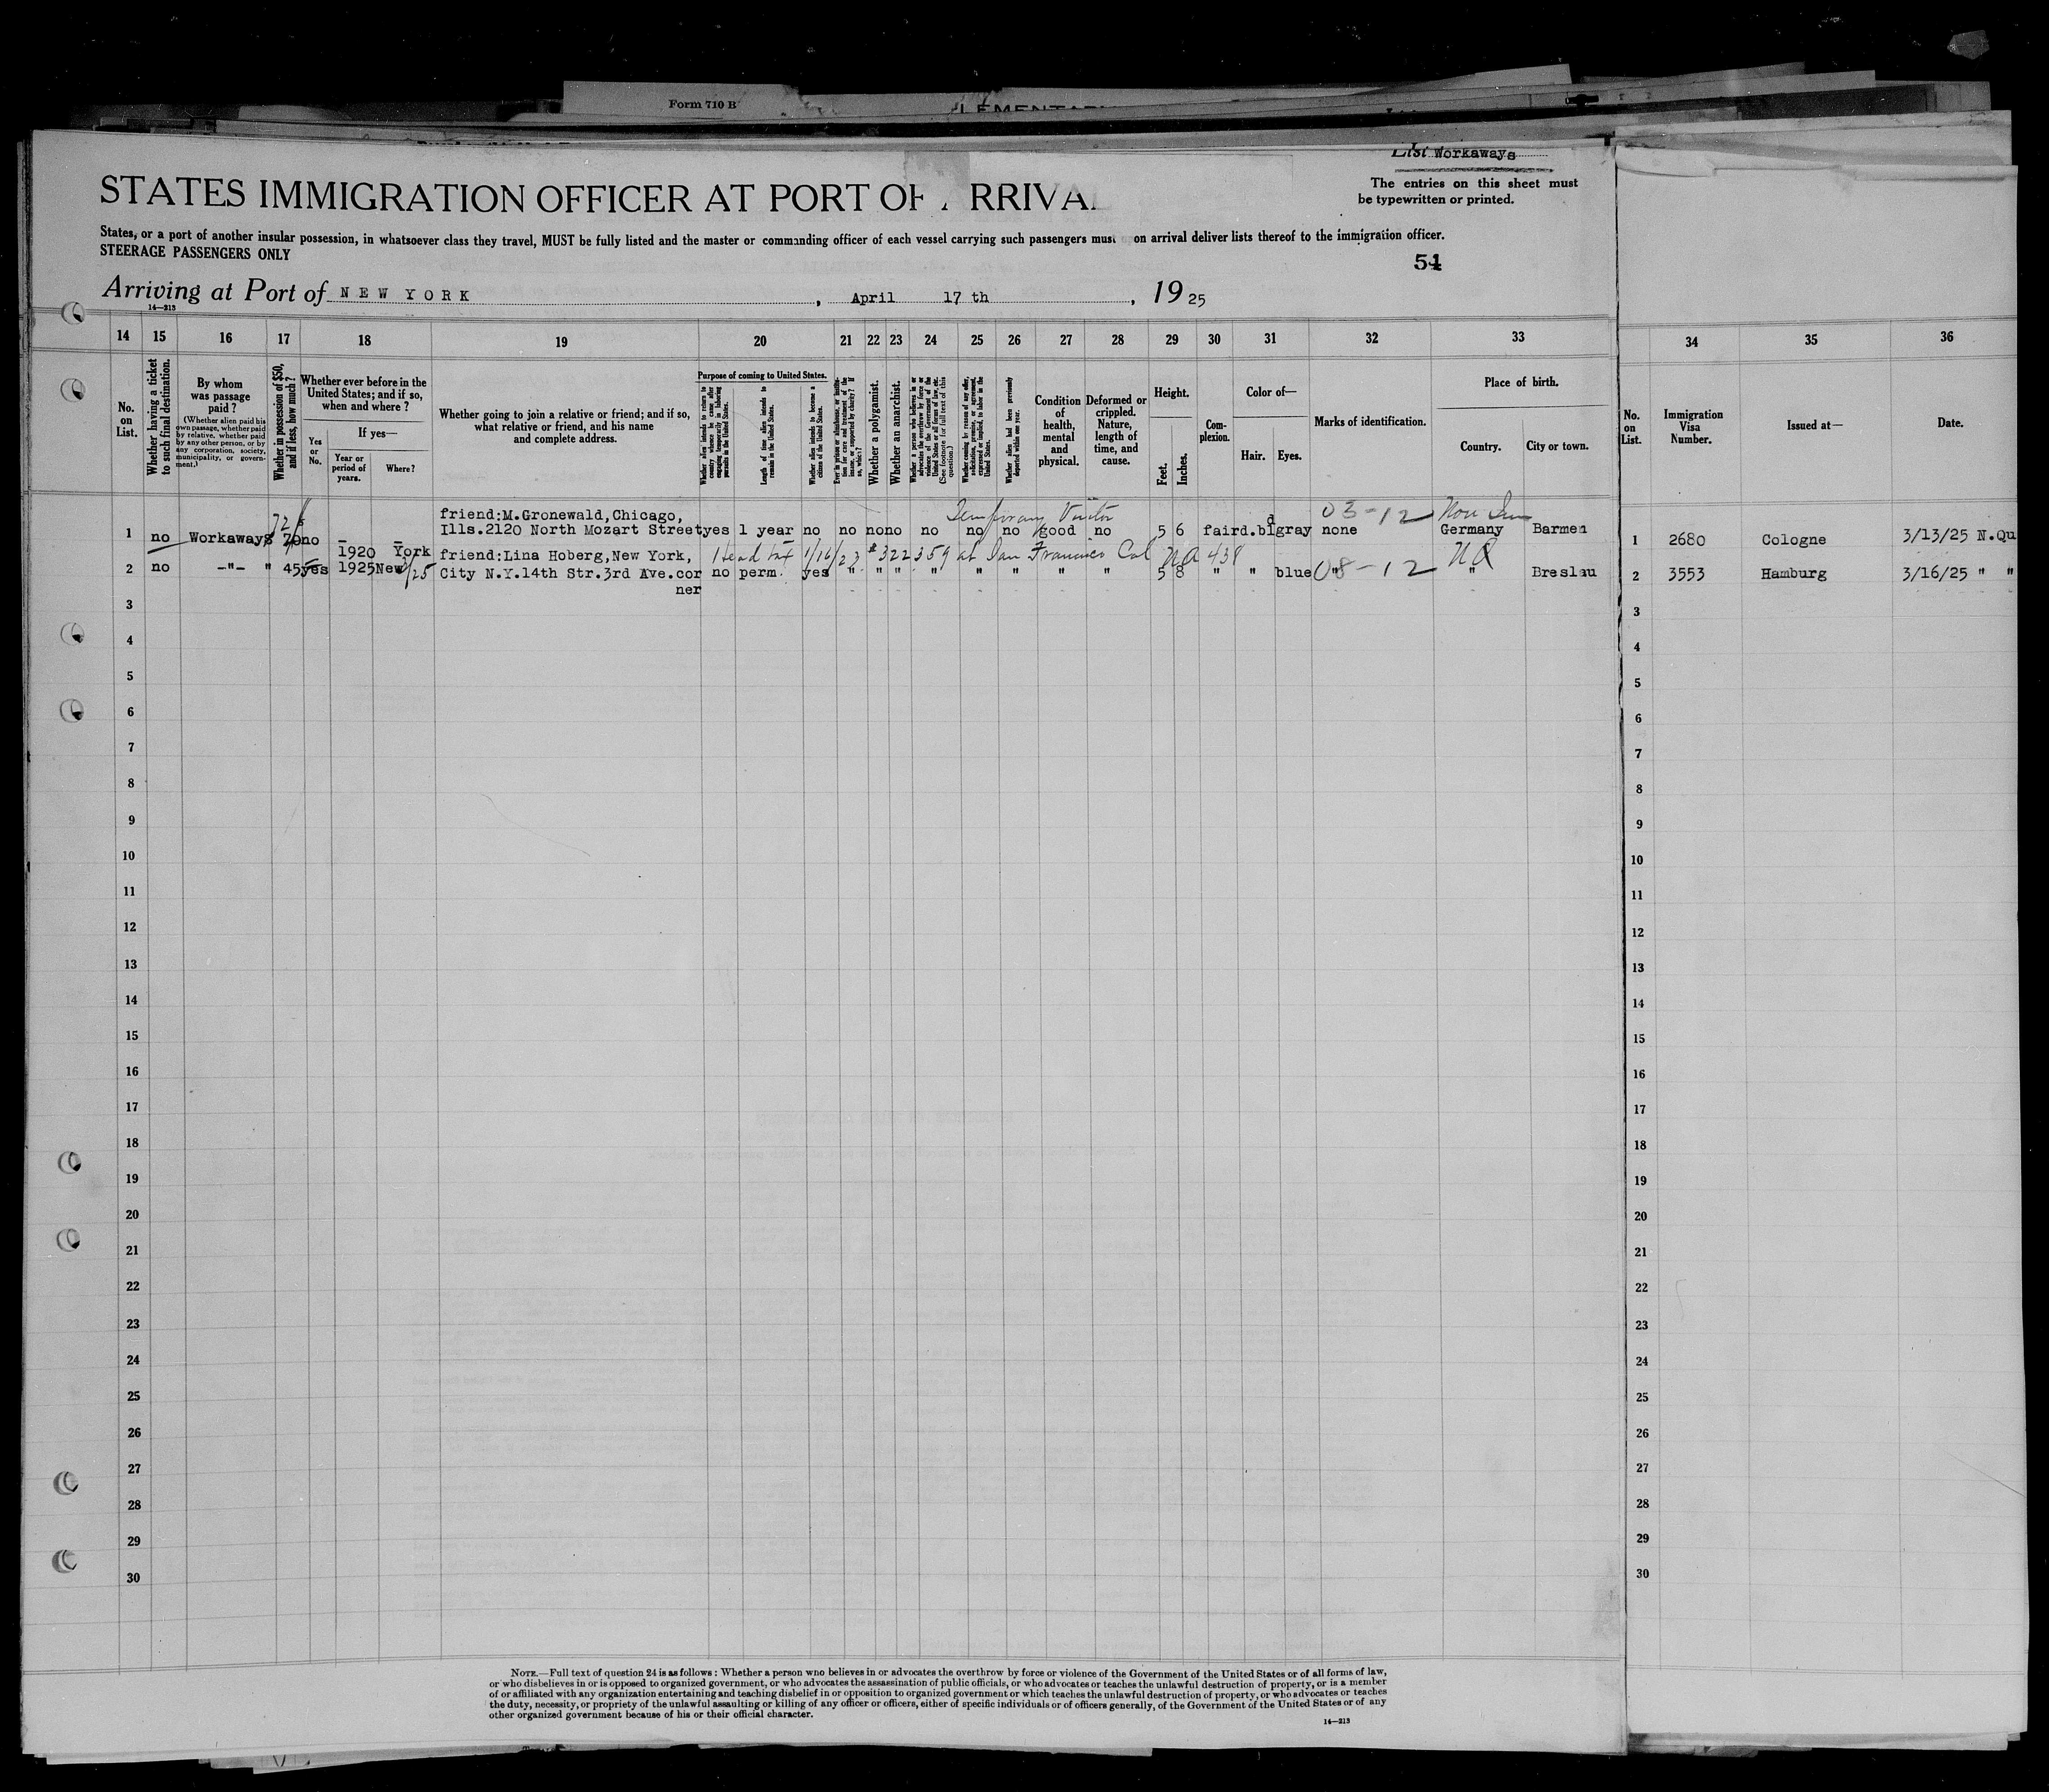 Form 710 B
List Workaways
STATES IMMIGRATION OFFICER AT PORT OF ARRIVAL
The entries on this sheet must
be typewritten or printed.
States, or a port of another insular possession, in whatsoever class they travel, MUST be fully listed and the master or commanding officer of each vessel carrying such passengers must on arrival deliver lists thereof to the immigration officer.
STEERAGE PASSENGERS ONLY
54
Arriving at Port of NEW YORK, April 17 th, 1925
14—213
14 15 16 17 18 19 20 21 22 23 24 25 26 27 28 29 30 31 32 33 34 35 36
No. on List.
Whether having a ticket to such final destination.
By whom was passage paid?
(Whether alien paid his own passage, whether paid by relative, whether paid by any other person, or by any corporation, society, municipality, or government.)
Whether in possession of $50, and if less, how much?
Whether ever before in the United States; and if so, when and where?
Yes or No.
If yes—
Year or period of years.
Where?
Whether going to join a relative or friend; and if so, what relative or friend, and his name and complete address.
Purpose of coming to United States.
Whether alien intends to return to country whence he came after engaging temporarily in laboring pursuits in the United States.
Length of time alien intends to remain in the United States.
Whether alien intends to become a citizen of the United States.
Ever in prison or almshouse, or institution for care and treatment of the insane, or supported by charity? If so, which?
Whether a polygamist.
Whether an anarchist.
Whether a person who believes in or advocates the overthrow by force or violence of the Government of the United States or all forms of law, etc. (See footnote for full text of this question.)
Whether coming by reason of any offer, solicitation, promise, or agreement, expressed or implied, to labor in the United States.
Whether alien had been previously deported within one year.
Condition of health, mental and physical.
Deformed or crippled. Nature, length of time, and cause.
Height.
Feet.
Inches.
Complexion.
Color of—
Hair.
Eyes.
Marks of identification.
Place of birth.
Country.
City or town.
No. on List.
Immigration Visa Number.
Issued at—
Date.
Temporary Visitor 03-12
friend:M.Gronewald,Chicago,
1 no Workaways 70 no – – Ills.2120 North Mozart Street yes 1 year no no no no no no no good no 5 6 fair d.bl gray none Germany Barmen 1 2680 Cologne 3/13/25 N.Qu
1920 York friend:Lina Hoberg,New York, Head tax 1/16/23 #322359 at San Francisco Cal NA 438 NQ
2 no -"- " 45 yes 1925 New City N.Y.14th Str.3rd Ave.cor no perm. yes " " " " " " " " 5 8 " " blue " 08-12 " Breslau 2 3553 Hamburg 3/16/25 " "
ner
3 3
4 4
5 5
6 6
7 7
8 8
9 9
10 10
11 11
12 12
13 13
14 14
15 15
16 16
17 17
18 18
19 19
20 20
21 21
22 22
23 23
24 24
25 25
26 26
27 27
28 28
29 29
30 30
NOTE.—Full text of question 24 is as follows: Whether a person who believes in or advocates the overthrow by force or violence of the Government of the United States or of all forms of law,
or who disbelieves in or is opposed to organized government, or who advocates the assassination of public officials, or who advocates or teaches the unlawful destruction of property, or is a member
of or affiliated with any organization entertaining and teaching disbelief in or opposition to organized government or which teaches the unlawful destruction of property, or who advocates or teaches
the duty, necessity, or propriety of the unlawful assaulting or killing of any officer or officers, either of specific individuals or of officers generally, of the Government of the United States or of any
other organized government because of his or their official character.
14—213